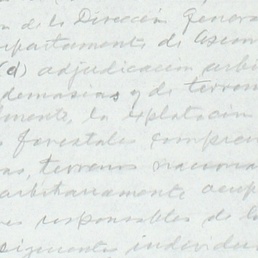 n de la Dirección Genera
epartamento de
(d) adjudicación arbi
demasias y de terren
mente, la explotación
s forestales compren
as, terrenos naciona
arbitrariamente ocup
es responsables de l
siguientes individu